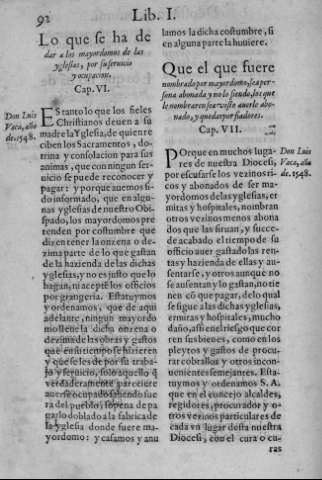 92
Lib. I.
Lo que se ha de
dar a los mayordomos de las
yglesias, por su seruicio
y ocupacion.
Cap. VI.
Don Luis
Vaca, año
de. 1548.
ES tanto lo que los fieles
Christianos deuen a su
madre la Yglesia, de quien re
ciben los Sacramentos, do-
trina y consolacion para sus
animas, que con ningun ser-
uicio se puede reconocer y
pagar: y porque auemos si-
do informado, que en algu-
nas yglesias de nuestro Obis
pado, los mayordomos pre
tenden por costumbre que
dizen tener la onzena o de-
zima parte de lo que gastan
de la hazienda de las dichas
yglesias, y no es justo que lo
hagan, ni acepten los officios
por grangeria. Estatuymos
y ordenamos, que de aqui
adelante, ningun mayordo
mo lleue la dicha onzena o
dezima de las obras y gastos
que en su tiempo se hizieren
y que se les de por su traba-
jo y seruicio, solo aquello q̃
verdaderamente pareciere
auerse ocupado saliendo fue
ra del pueblo, so pena de pa
garlo doblado a la fabrica de
la yglesia donde fuere ma-
yordomo: y casamos y anu
lamos la dicha costumbre, si
en alguna parte la huuiere.
Que el que fuere
nombrado por mayordomo, sea per
sona abonada y no lo siendo, los que
le nombraren sea visto auerle abo-
nado, y quedar por fiadores.
Cap. VII.
Don Luis
Vaca, año
de. 1548.
POrque en muchos luga-
res de nuestra Diocesi,
por escusarse los vezinos ri-
cos y abonados de ser ma-
yordomos de las yglesias, er
mitas y hospitales, nombran
otros vezinos menos abona
dos que las siruan, y succe-
de acabado el tiempo de su
officio auer gastado las ren-
tas y hazienda de ellas y au-
sentarse, y otros aunque no
se ausentan y lo gastan, no tie
nen cõ que pagar, de lo qual
se sigue a las dichas yglesias,
ermitas y hospitales, mucho
daño, assi en el riesgo que cor
ren sus bienes, como en los
pleytos y gastos de procu-
rar cobrallos y otros incon-
uenientes semejantes. Esta-
tuymos y ordenamos S. A.
que en el concejo alcaldes,
regidores, procurador y o-
tros vezinos particulares de
cada vn lugar desta nuestra
Diocesi, con el cura o cu-
ras